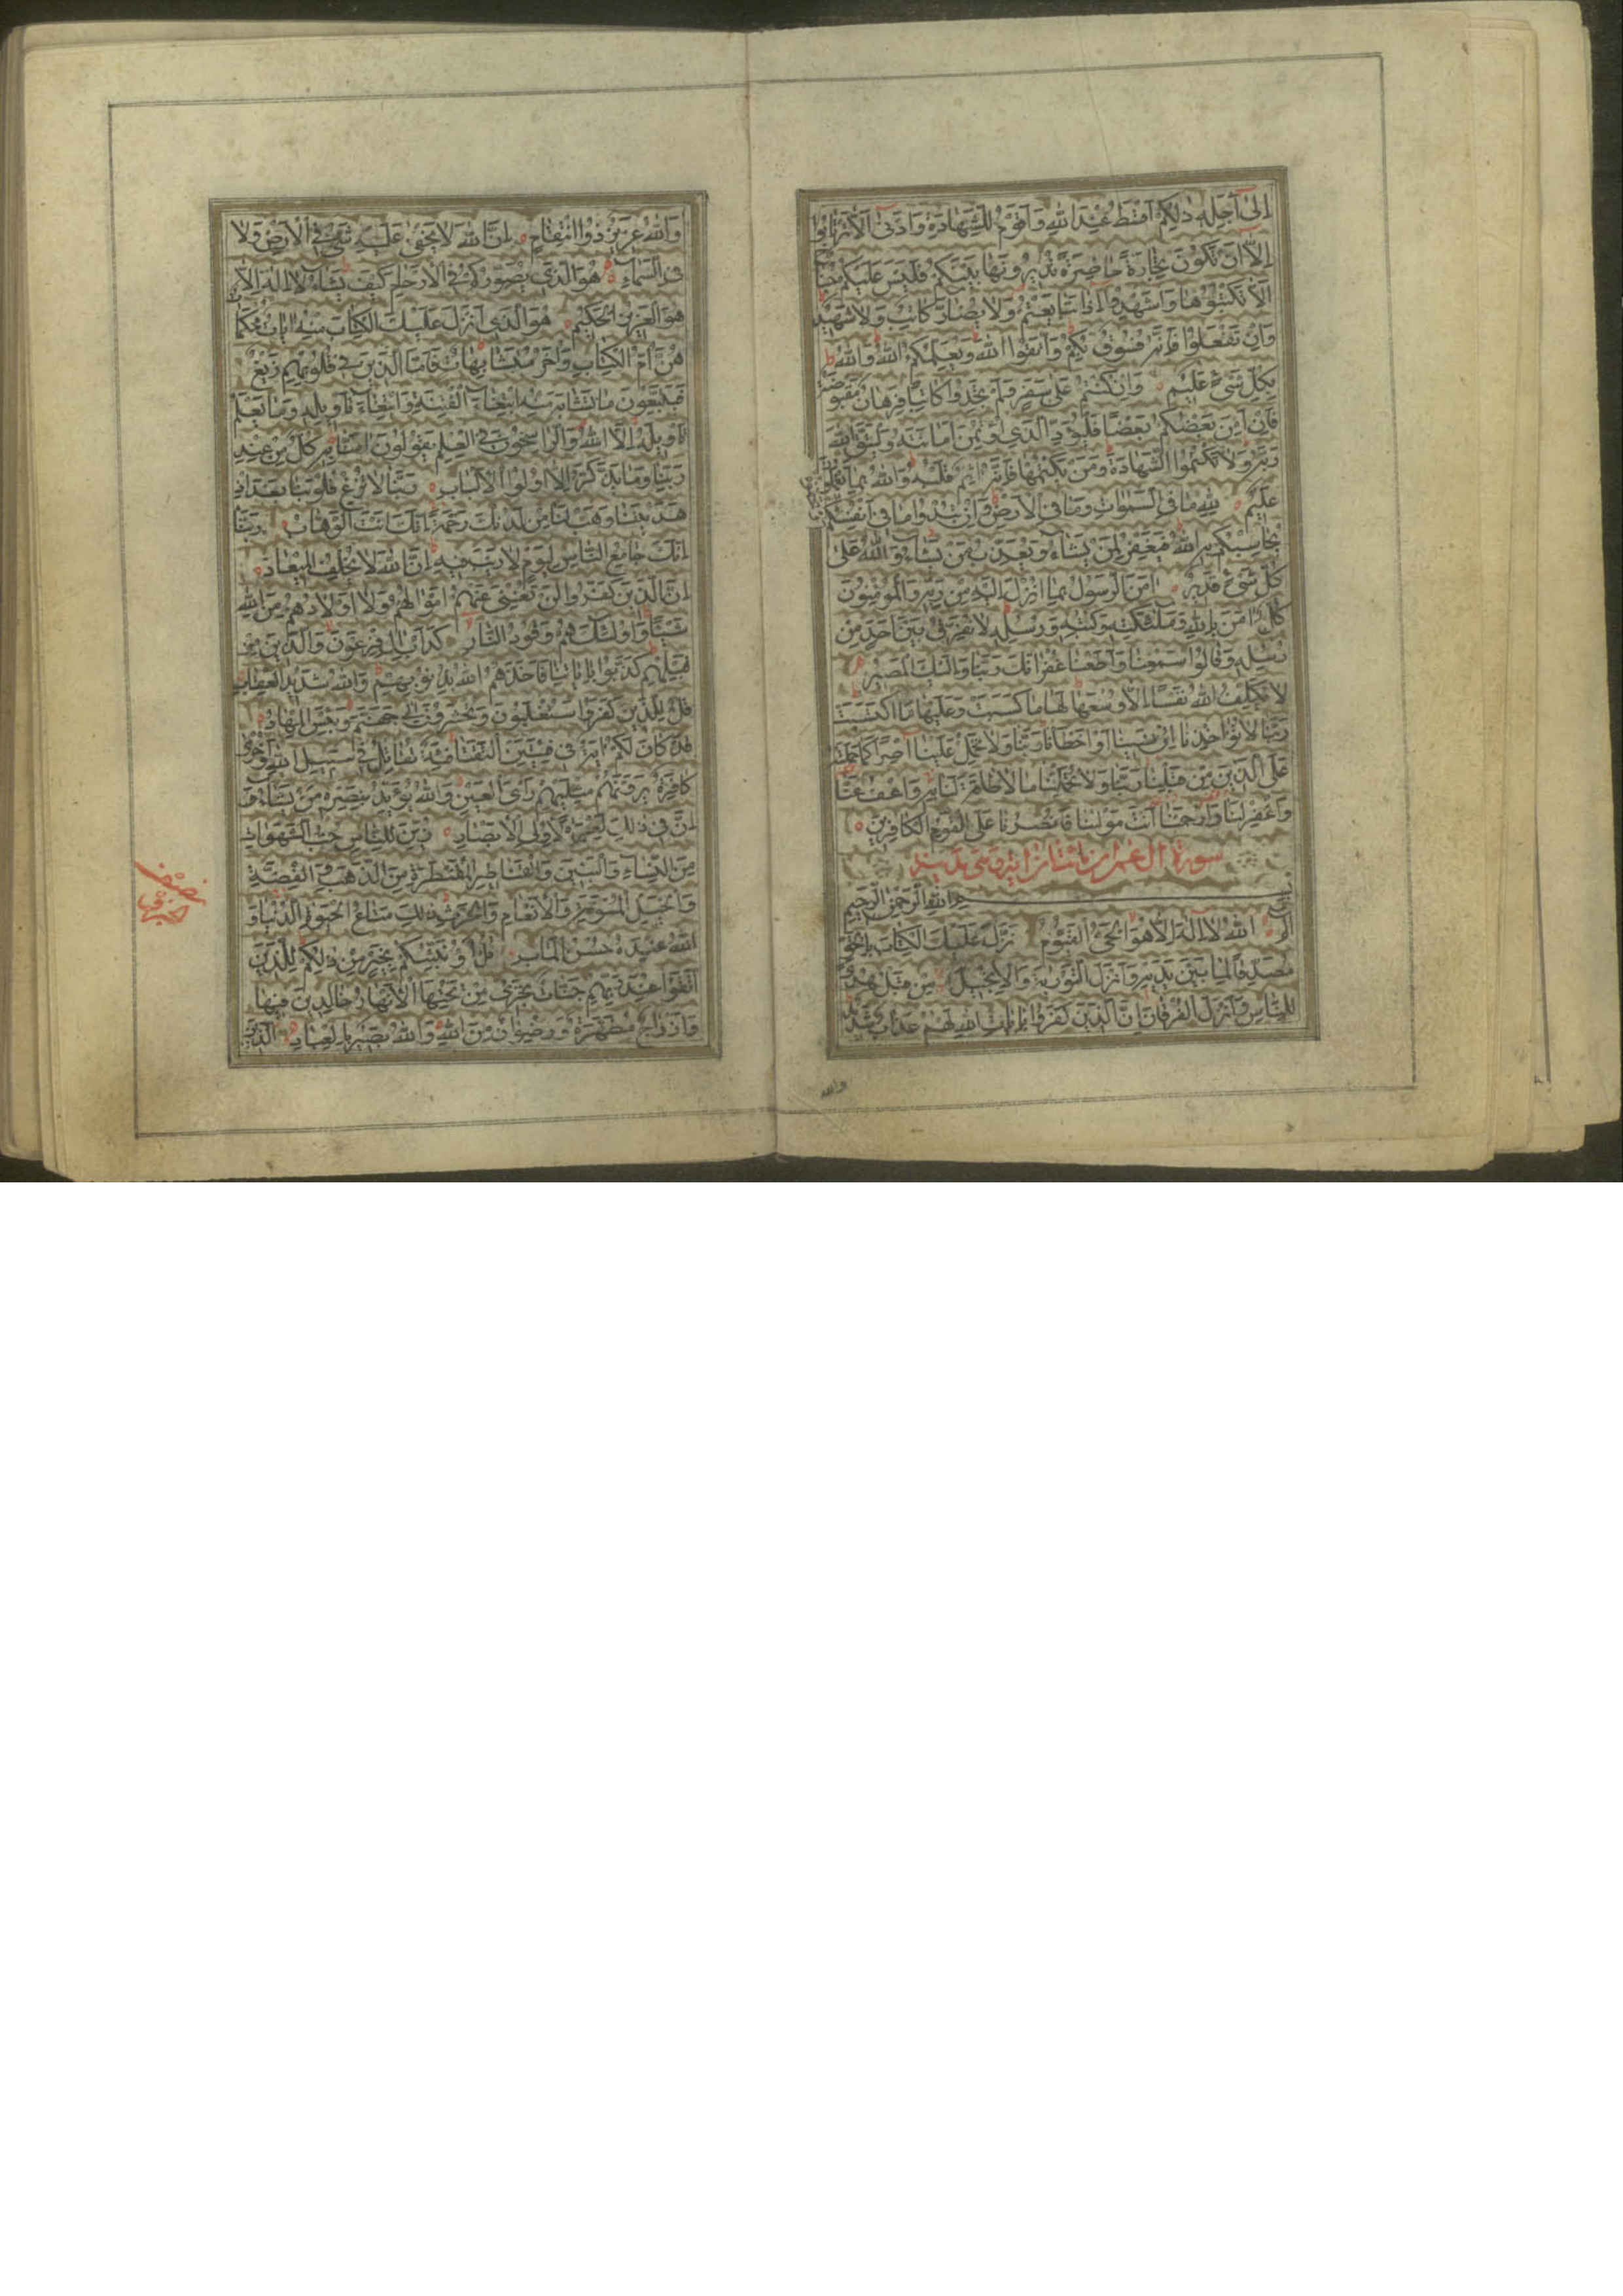 إِلَىٰ أَجَلِهِ ذٰلِكُمْ أَقْسَطُ عِنْدَ اللهِ وَأَقْوَمُ لِلشَّهَادَةِ وَأَدْنَىٰ أَلَّا تَرْتَابُوا
إِلَّا أَنْ تَكُونَ تِجَارَةً حَاضِرَةً تُدِيرُونَهَا بَيْنَكُمْ فَلَيْسَ عَلَيْكُمْ جُنَاحٌ
أَلَّا تَكْتُبُوهَا وَأَشْهِدُوا إِذَا تَبَايَعْتُمْ وَلَا يُضَارَّ كَاتِبٌ وَلَا شَهِيدٌ
وَإِنْ تَفْعَلُوا فَإِنَّهُ فُسُوقٌ بِكُمْ وَاتَّقُوا اللهَ وَيُعَلِّمُكُمُ اللهُ وَاللهُ
بِكُلِّ شَيْءٍ عَلِيمٌ وَإِنْ كُنْتُمْ عَلَىٰ سَفَرٍ وَلَمْ تَجِدُوا كَاتِبًا فَرِهَانٌ مَقْبُوضَةٌ
فَإِنْ أَمِنَ بَعْضُكُمْ بَعْضًا فَلْيُؤَدِّ الَّذِي اؤْتُمِنَ أَمَانَتَهُ وَلْيَتَّقِ اللهَ
رَبَّهُ وَلَا تَكْتُمُوا الشَّهَادَةَ وَمَنْ يَكْتُمْهَا فَإِنَّهُ آثِمٌ قَلْبُهُ وَاللهُ بِمَا تَعْمَلُونَ
عَلِيمٌ لِلّٰهِ مَا فِي السَّمٰوَاتِ وَمَا فِي الْأَرْضِ وَإِنْ تُبْدُوا مَا فِي أَنْفُسِكُمْ
يُحَاسِبْكُمْ بِهِ اللهُ فَيَغْفِرُ لِمَنْ يَشَاءُ وَيُعَذِّبُ مَنْ يَشَاءُ وَاللهُ عَلَىٰ
كُلِّ شَيْءٍ قَدِيرٌ آمَنَ الرَّسُولُ بِمَا أُنْزِلَ إِلَيْهِ مِنْ رَبِّهِ وَالْمُؤْمِنُونَ
كُلٌّ آمَنَ بِاللهِ وَمَلٰئِكَتِهِ وَكُتُبِهِ وَرُسُلِهِ لَا نُفَرِّقُ بَيْنَ أَحَدٍ مِنْ
رُسُلِهِ وَقَالُوا سَمِعْنَا وَأَطَعْنَا غُفْرَانَكَ رَبَّنَا وَإِلَيْكَ الْمَصِيرُ
لَا يُكَلِّفُ اللهُ نَفْسًا إِلَّا وُسْعَهَا لَهَا مَا كَسَبَتْ وَعَلَيْهَا مَا اكْتَسَبَتْ
رَبَّنَا لَا تُؤَاخِذْنَا إِنْ نَسِينَا أَوْ أَخْطَأْنَا رَبَّنَا وَلَا تَحْمِلْ عَلَيْنَا إِصْرًا كَمَا حَمَلْتَهُ
عَلَى الَّذِينَ مِنْ قَبْلِنَا رَبَّنَا وَلَا تُحَمِّلْنَا مَا لَا طَاقَةَ لَنَا بِهِ وَاعْفُ عَنَّا
وَاغْفِرْ لَنَا وَارْحَمْنَا أَنْتَ مَوْلٰنَا فَانْصُرْنَا عَلَى الْقَوْمِ الْكَافِرِينَ
سورة آل عمران مائتان آية وهي مدنية
بسم اللهِ الرَّحْمٰنِ الرَّحِيمِ
الم اللهُ لَا إِلٰهَ إِلَّا هُوَ الْحَيُّ الْقَيُّومُ نَزَّلَ عَلَيْكَ الْكِتَابَ بِالْحَقِّ
مُصَدِّقًا لِمَا بَيْنَ يَدَيْهِ وَأَنْزَلَ التَّوْرٰيةَ وَالْإِنْجِيلَ مِنْ قَبْلُ هُدًى
لِلنَّاسِ وَأَنْزَلَ الْفُرْقَانَ إِنَّ الَّذِينَ كَفَرُوا بِآيَاتِ اللهِ لَهُمْ عَذَابٌ شَدِيدٌ
والله
وَاللهُ عَزِيزٌ ذُو انْتِقَامٍ إِنَّ اللهَ لَا يَخْفَىٰ عَلَيْهِ شَيْءٌ فِي الْأَرْضِ وَلَا
فِي السَّمَاءِ هُوَ الَّذِي يُصَوِّرُكُمْ فِي الْأَرْحَامِ كَيْفَ يَشَاءُ لَا إِلٰهَ إِلَّا
هُوَ الْعَزِيزُ الْحَكِيمُ هُوَ الَّذِي أَنْزَلَ عَلَيْكَ الْكِتَابَ مِنْهُ آيَاتٌ مُحْكَمَاتٌ
هُنَّ أُمُّ الْكِتَابِ وَأُخَرُ مُتَشَابِهَاتٌ فَأَمَّا الَّذِينَ فِي قُلُوبِهِمْ زَيْغٌ
فَيَتَّبِعُونَ مَا تَشَابَهَ مِنْهُ ابْتِغَاءَ الْفِتْنَةِ وَابْتِغَاءَ تَأْوِيلِهِ وَمَا يَعْلَمُ
تَأْوِيلَهُ إِلَّا اللهُ وَالرَّاسِخُونَ فِي الْعِلْمِ يَقُولُونَ آمَنَّا بِهِ كُلٌّ مِنْ عِنْدِ
رَبِّنَا وَمَا يَذَّكَّرُ إِلَّا أُولُوا الْأَلْبَابِ رَبَّنَا لَا تُزِغْ قُلُوبَنَا بَعْدَ إِذْ
هَدَيْتَنَا وَهَبْ لَنَا مِنْ لَدُنْكَ رَحْمَةً إِنَّكَ أَنْتَ الْوَهَّابُ رَبَّنَا
إِنَّكَ جَامِعُ النَّاسِ لِيَوْمٍ لَا رَيْبَ فِيهِ إِنَّ اللهَ لَا يُخْلِفُ الْمِيعَادَ
إِنَّ الَّذِينَ كَفَرُوا لَنْ تُغْنِيَ عَنْهُمْ أَمْوَالُهُمْ وَلَا أَوْلَادُهُمْ مِنَ اللهِ
شَيْئًا وَأُولٰئِكَ هُمْ وَقُودُ النَّارِ كَدَأْبِ آلِ فِرْعَوْنَ وَالَّذِينَ مِنْ
قَبْلِهِمْ كَذَّبُوا بِآيَاتِنَا فَأَخَذَهُمُ اللهُ بِذُنُوبِهِمْ وَاللهُ شَدِيدُ الْعِقَابِ
قُلْ لِلَّذِينَ كَفَرُوا سَتُغْلَبُونَ وَتُحْشَرُونَ إِلَىٰ جَهَنَّمَ وَبِئْسَ الْمِهَادُ
قَدْ كَانَ لَكُمْ آيَةٌ فِي فِئَتَيْنِ الْتَقَتَا فِئَةٌ تُقَاتِلُ فِي سَبِيلِ اللهِ وَأُخْرَىٰ
كَافِرَةٌ يَرَوْنَهُمْ مِثْلَيْهِمْ رَأْيَ الْعَيْنِ وَاللهُ يُؤَيِّدُ بِنَصْرِهِ مَنْ يَشَاءُ
إِنَّ فِي ذٰلِكَ لَعِبْرَةً لِأُولِي الْأَبْصَارِ زُيِّنَ لِلنَّاسِ حُبُّ الشَّهَوَاتِ
مِنَ النِّسَاءِ وَالْبَنِينَ وَالْقَنَاطِيرِ الْمُقَنْطَرَةِ مِنَ الذَّهَبِ وَالْفِضَّةِ
وَالْخَيْلِ الْمُسَوَّمَةِ وَالْأَنْعَامِ وَالْحَرْثِ ذٰلِكَ مَتَاعُ الْحَيٰوةِ الدُّنْيَا وَ
اللهُ عِنْدَهُ حُسْنُ الْمَآبِ قُلْ أَؤُنَبِّئُكُمْ بِخَيْرٍ مِنْ ذٰلِكُمْ لِلَّذِينَ
اتَّقَوْا عِنْدَ رَبِّهِمْ جَنَّاتٌ تَجْرِي مِنْ تَحْتِهَا الْأَنْهَارُ خَالِدِينَ فِيهَا
وَأَزْوَاجٌ مُطَهَّرَةٌ وَرِضْوَانٌ مِنَ اللهِ وَاللهُ بَصِيرٌ بِالْعِبَادِ الَّذِينَ